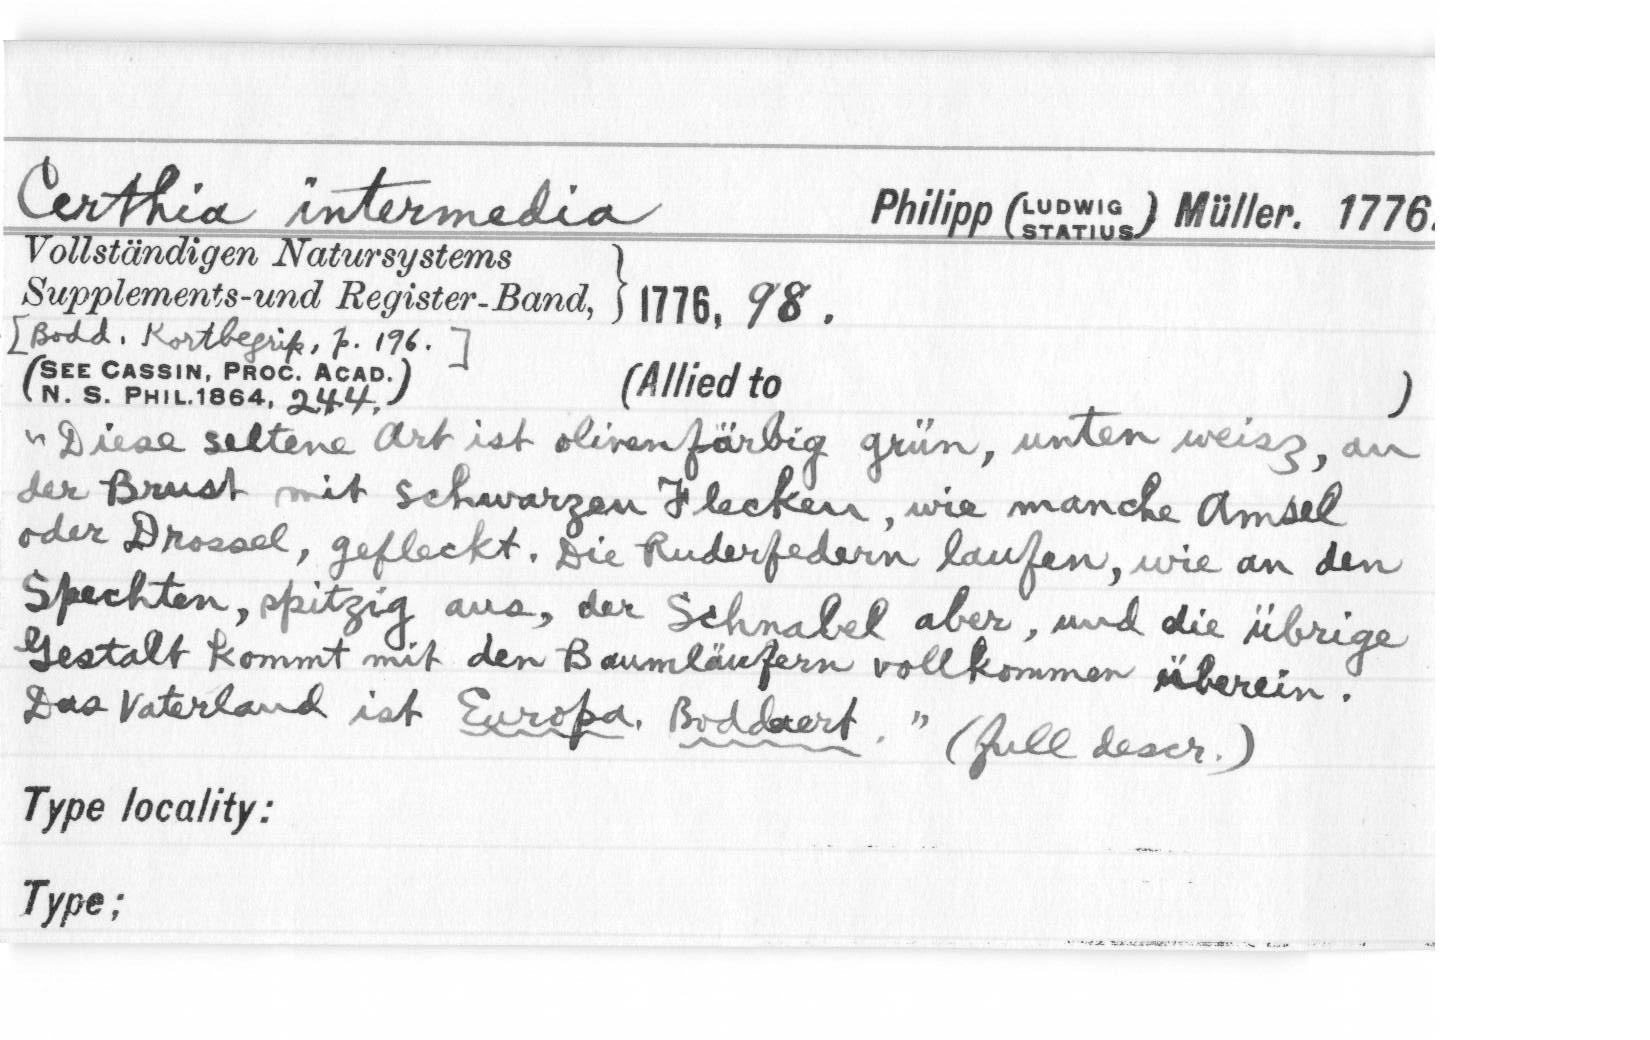 Certhia intermedia Philipp (LUDWIG STATIUS) Müller. 1776.
Vollständigen Natursystems
Supplements-und Register-Band, } 1776, 98.
[Bodd. Kortbegrip, p. 196.]
(SEE CASSIN, PROC. ACAD.
N. S. PHIL. 1864, 244.) (Allied to )
"Diese seltene Art ist olivenfärbig grün, unten weisz, an
der Brust mit schwarzen Flecken, wie manche Amsel
oder Drossel, gefleckt. Die Ruderfedern laufen, wie an den
Spechten, spitzig aus, der Schnabel aber, und die übrige
Gestalt kommt mit den Baumläufern vollkommen überein.
Das Vaterland ist Europa. Boddaert." (full descr.)
Type locality:
Type;